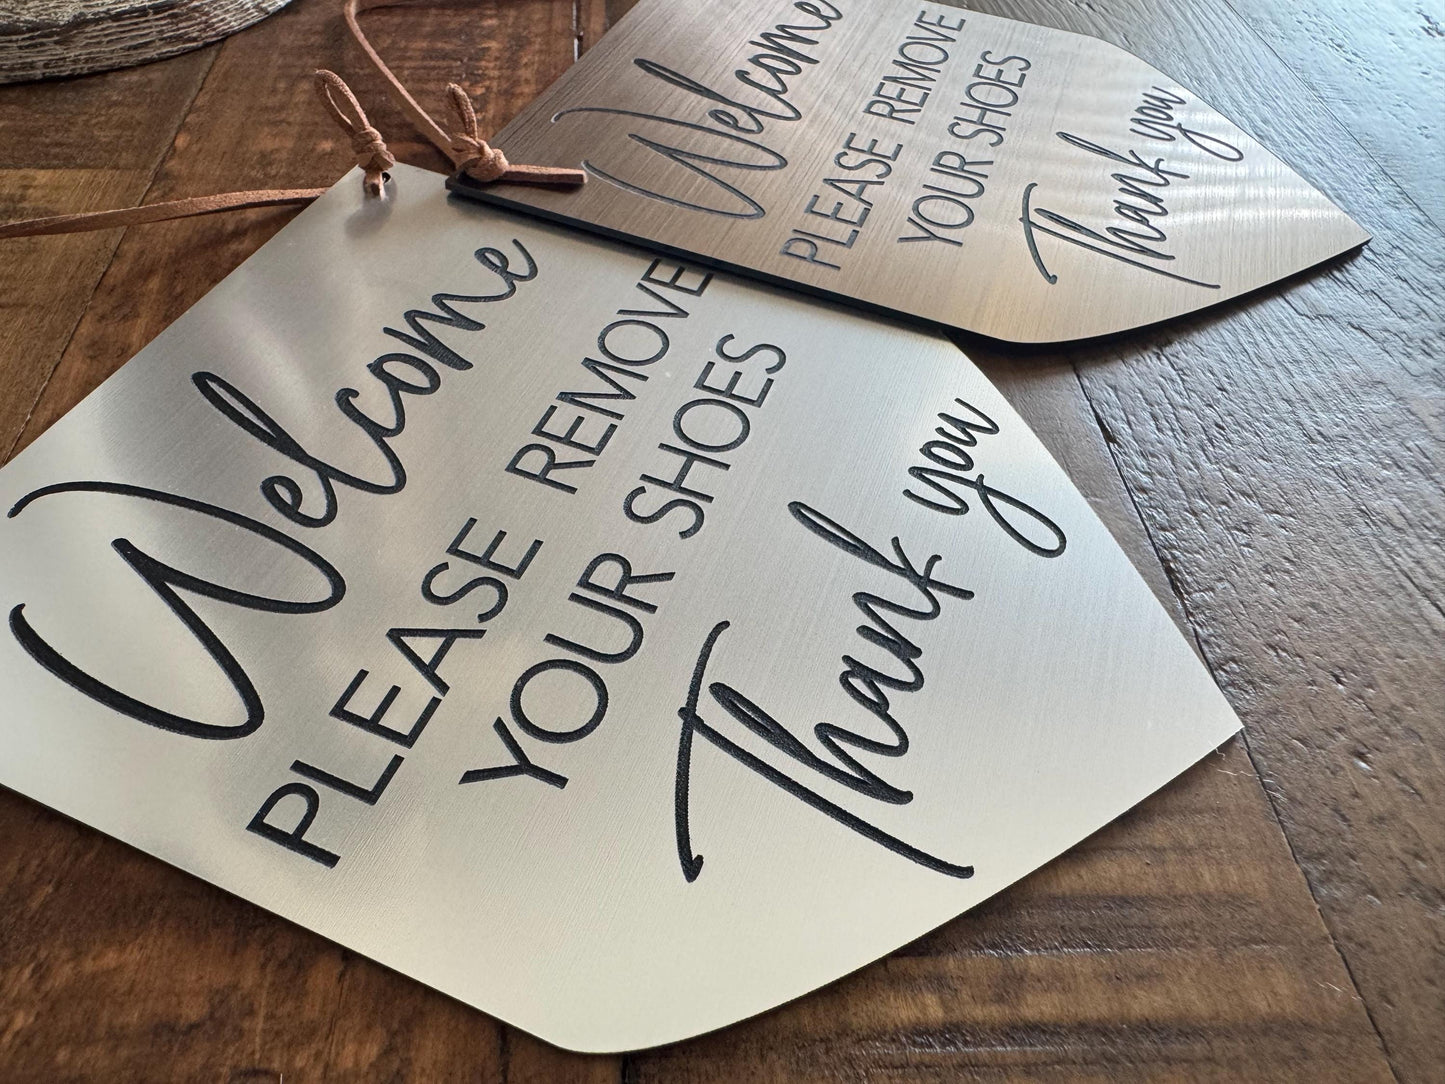 Welcome
PLEASE REMOVE
YOUR SHOES
Thank you
Welcome
PLEASE REMOVE
YOUR SHOES
Thank you